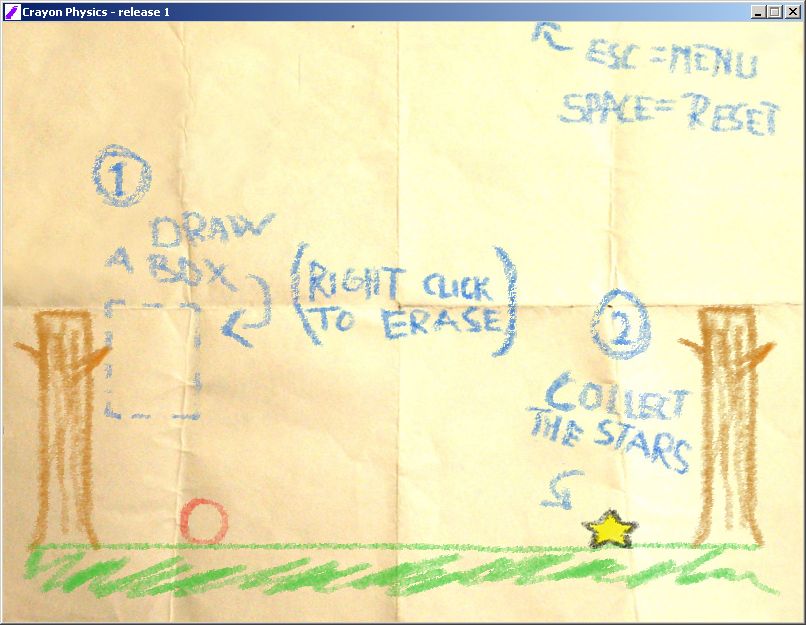 Crayon Physics - release 1
ESC = MENU
SPACE = RESET
1
DRAW
A BOX
(RIGHT CLICK
TO ERASE)
2
COLLECT
THE STARS